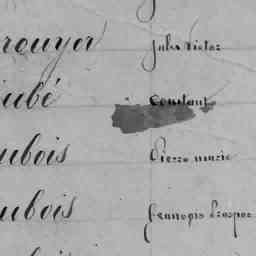 rouyer Jules Victor
ubé Constant
ubois Pierre marie
ubois françois Prosper